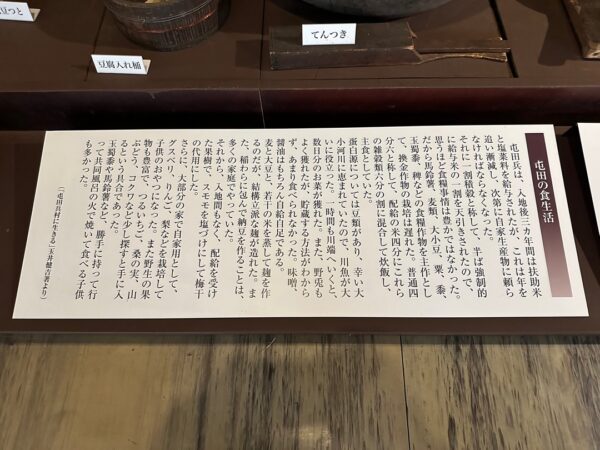 豆つと
豆腐入れ桶
てんつき
屯田の食生活
屯田兵は、入地後三カ年間は扶助米
と塩菜料を給与されたが、これは年を
追い漸減し、次第に自家生産物に頼ら
なければならなくなった。半ば強制的
それに一割積穀と称して、
に給与米の一割を天引きされたので、
思うほど食糧事情は豊かではなかった。
だから馬鈴薯、麦類、大小豆、粟、黍、
玉蜀黍、稗などの食糧作物を主作とし
て、換金作物の栽培は遅れた。普通四
分六と称して、配給の米四分にこれら
の雑穀類六分の割に混合して炊飯し、
主食としていた。
蛋白源については豆類があり、幸い大
小河川に恵まれていたので、川魚が大
いに役立った。一時間も川端へいくと、
数日分のお菜が獲れた。また、野兎も
よく獲れたが、貯蔵する方法がわから
ず、あまり食べられなかった。味噌、
醤油はもちろん自給自足である。
麦と大豆と、若干の米を蒸して麹を作
るのだが、結構立派な麹が造れた。ま
た、稲わらに包んで納豆を作ることは、
多くの家庭でやっていた。
それから、入地間もなく、配給を受け
た果樹で、スモモを塩づけにして梅干
の代用にした。
さらに、一部分の家で自家用として、
グスベリ、りんご、梨などを栽培して
子供のおやつになった。また野生の果
物も豊富で、つるいちご、桑の実、山
ぶどう、コクワなど少し探すと手に入
るという具合であった。
玉蜀黍や馬鈴薯など、勝手に持って行
って共同風呂の火で焼いて食べる子供
も多かった。
(「屯田兵村に生きる」玉井健吉著より)